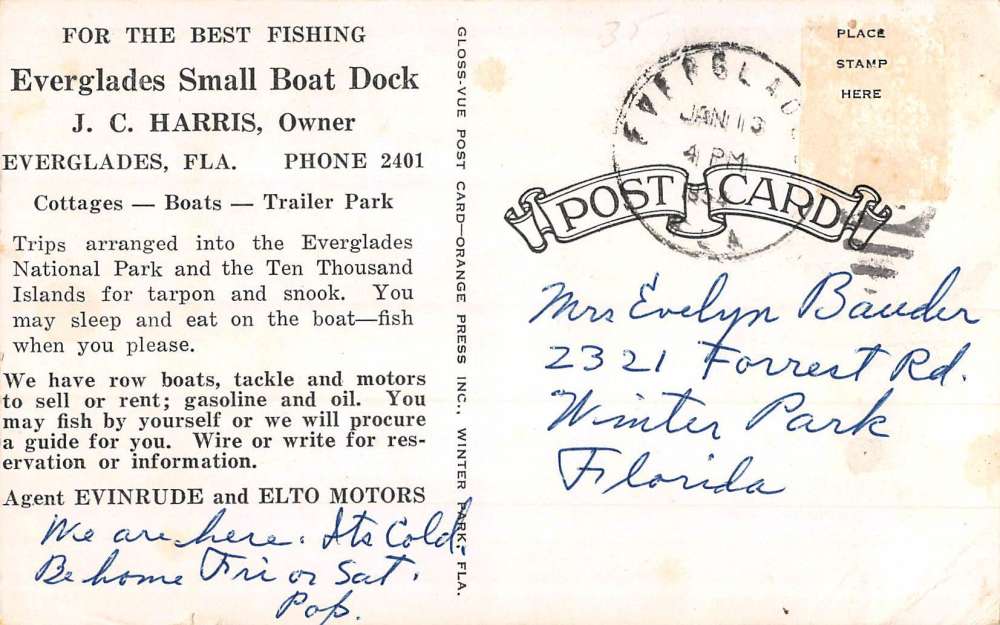 FOR THE BEST FISHING
Everglades Small Boat Dock
J. C. HARRIS, Owner
EVERGLADES, FLA. PHONE 2401
Cottages — Boats — Trailer Park
Trips arranged into the Everglades
National Park and the Ten Thousand
Islands for tarpon and snook. You
may sleep and eat on the boat—fish
when you please.
We have row boats, tackle and motors
to sell or rent; gasoline and oil. You
may fish by yourself or we will procure
a guide for you. Wire or write for res-
ervation or information.
Agent EVINRUDE and ELTO MOTORS
We are here. Its Cold.
Be home Fri or Sat.
Pop.
GLOSS-VUE POST CARD—ORANGE PRESS INC., WINTER PARK, FLA.
PLACE
STAMP
HERE
EVERGLAD
JAN 13
4 PM
POST CARD
Mrs Evelyn Bauder
2321 Forrest Rd.
Winter Park
Florida